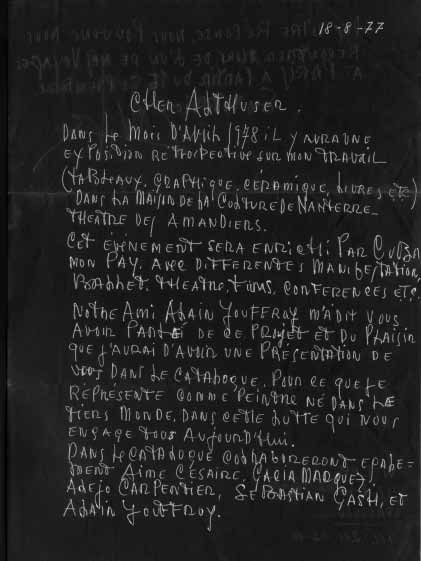 18-8-77
CHER ALTHUSER.
DANS LE MOIS D'AVRIL 1978 IL Y AURA UNE
EXPOSIDION RETROSPECTIVE SUR MON TRAVAIL
(TABLEAUX, GRAPHIQUE, CÉRAMIQUE, LIVRES ETC)
DANS LA MAISON DE LA CULTURE DE NANTERRE-
THEATRE DES AMANDIERS.
CET ÉVÉNEMENT SERA ENRICHI PAR CUBA
MON PAY, AVEC DIFFERENTES MANIFESTATION,
BALLHET, THEATRE, FILMS, CONFERENCES ETC.
NOTRE AMI ALAIN JOUFFROY M'A DIT VOUS
AVOIR PARLÉ DE CE PROJET ET DU PLAISIR
QUE J'AURAI D'AVOIR UNE PRÉSENTATION DE
VOUS DANS LE CATALOGUE, POUR CE QUE JE
RÉPRÉSENTE COMME PEINTRE NÉ DANS LE
TIERS MONDE, DANS CETTE LUTTE QUI NOUS
ENGAGE TOUS AUJOURD'HUI.
DANS LE CATALOGUE COLLABORERONT EGALE=
MENT AIME CÉSAIRE, GACIA MARQUEZ,
ALEJO CARPENTIER, SEBASTIAN GASH, ET
ALAIN JOUFFROY.